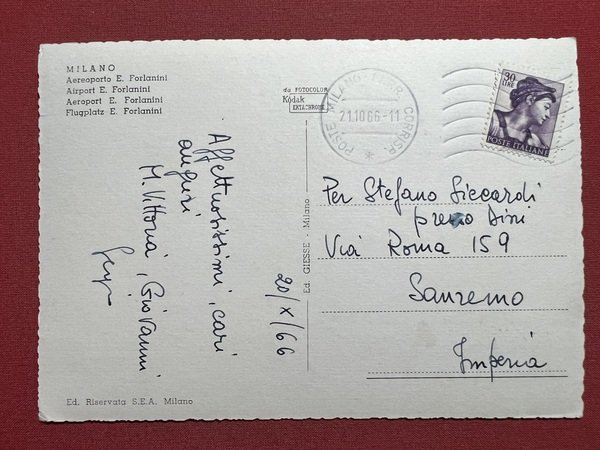 MILANO
Aereoporto E. Forlanini
Airport E. Forlanini
Aeroport E. Forlanini
Flugplatz E. Forlanini
da FOTOCOLOR
Kodak
EKTACHROME
POSTE MILANO FERR. CORRISP.
21.10.66-11
30
LIRE
POSTE ITALIANE
Affettuosissimi, cari
auguri
M. Vittoria, Giovanni
20/X/66
Ed. GIESSE - Milano
Per Stefano Siccardi
presso Dini
Via Roma 159
Sanremo
Imperia
Ed. Riservata S.E.A. Milano